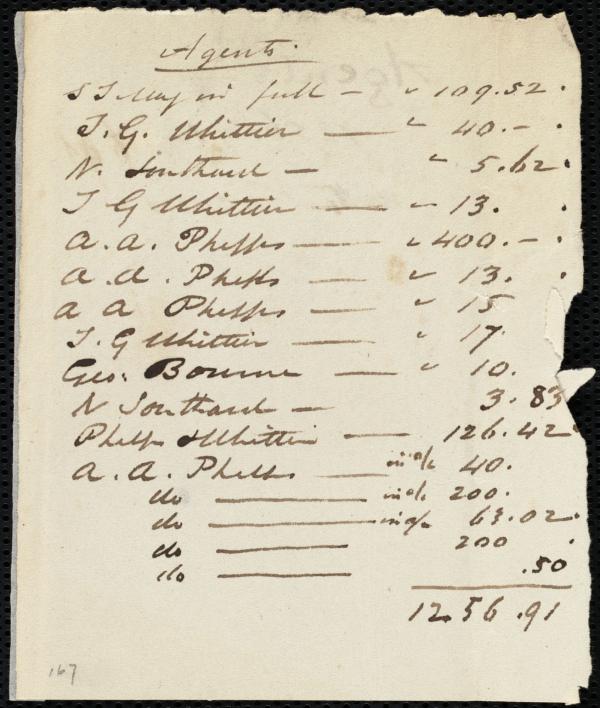 Agents.
S J May in full — " 109.52
J. G. Whittier — " 40.—
N. Southard — " 5.62
J G Whittier — " 13.
A. A. Phelps — " 400.—
A. A. Phelps — " 13.
A A Phelps — " 15
J. G Whittier — " 17.
Geo. Bourne — " 10.
N Southard — 3.83
Phelps & Whittier — 126.42
A. A. Phelps — in a/c 40.
do — in a/c 200.
do — in a/c 63.02
do — 200
do — .50
1256.91
167